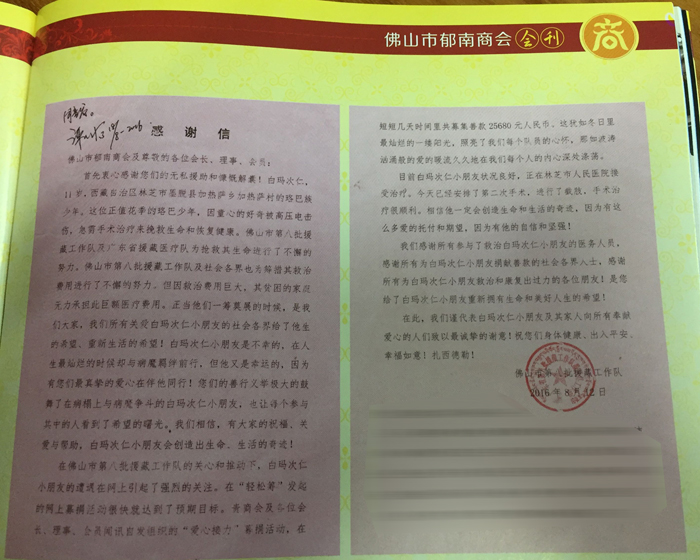 佛山市郁南商会会刊
商
感谢信
佛山市郁南商会及尊敬的各位会长、理事、会员：
首先衷心感谢您们的无私援助和慷慨解囊！白玛次仁，
11岁，西藏自治区林芝市墨脱县加热萨乡加热萨村的珞巴族
少年。这位正值花季的珞巴少年，因童心的好奇被高压电击
伤，急需手术治疗来挽救生命和恢复健康。佛山市第八批援
藏工作队及广东省援藏医疗队为抢救其生命进行了不懈的
努力。佛山市第八批援藏工作队及社会各界也为解决其救治
费用进行了不懈的努力。但因救治费用巨大，其贫困的家庭
无力承担此巨额医疗费用。正当他们一筹莫展的时候，是我
们大家，我们所有关爱白玛次仁小朋友的社会各界给了他生
的希望、重新生活的希望！白玛次仁小朋友是不幸的，在人
生最灿烂的时候却与病魔羁绊前行，但他又是幸运的，因为
有您们最真挚的爱心在伴他同行！您们的善行义举极大的鼓
舞了在病榻上与病魔争斗的白玛次仁小朋友，也让每个参与
其中的人看到了希望的曙光。我们相信，有大家的祝福、关
爱与帮助，白玛次仁小朋友会创造出生命、生活的奇迹！
在佛山市第八批援藏工作队的关心和推动下，白玛次仁
小朋友的遭遇在网上引起了强烈的关注。在“轻松筹”发起
的网上募捐活动很快就达到了预期目标。贵商会及各位会
长、理事、会员闻讯自发组织的“爱心接力”募捐活动，在
短短几天时间里共募集善款25680元人民币。这犹如冬日里
最灿烂的一缕阳光，照亮了我们每个队员的心怀，那如波涛
汹涌般的爱的暖流久久地在我们每个人的内心深处涤荡。
目前白玛次仁小朋友状况良好，正在林芝市人民医院接
受治疗。今天已经安排了第二次手术，进行了截肢，手术治
疗很顺利。相信他一定会创造生命和生活的奇迹，因为有这
么多爱的托付和期望，因为有他的自信和坚强！
我们感谢所有参与了救治白玛次仁小朋友的医务人员，
感谢所有为白玛次仁小朋友捐献善款的社会各界人士，感谢
所有为白玛次仁小朋友救治和康复出过力的各位朋友！是您
给了白玛次仁小朋友重新拥有生命和美好人生的希望！
在此，我们谨代表白玛次仁小朋友及其家人向所有奉献
爱心的人们致以最诚挚的谢意！祝您们身体健康、出入平安、
幸福如意！扎西德勒！
佛山市第八批援藏工作队
2016年8月12日